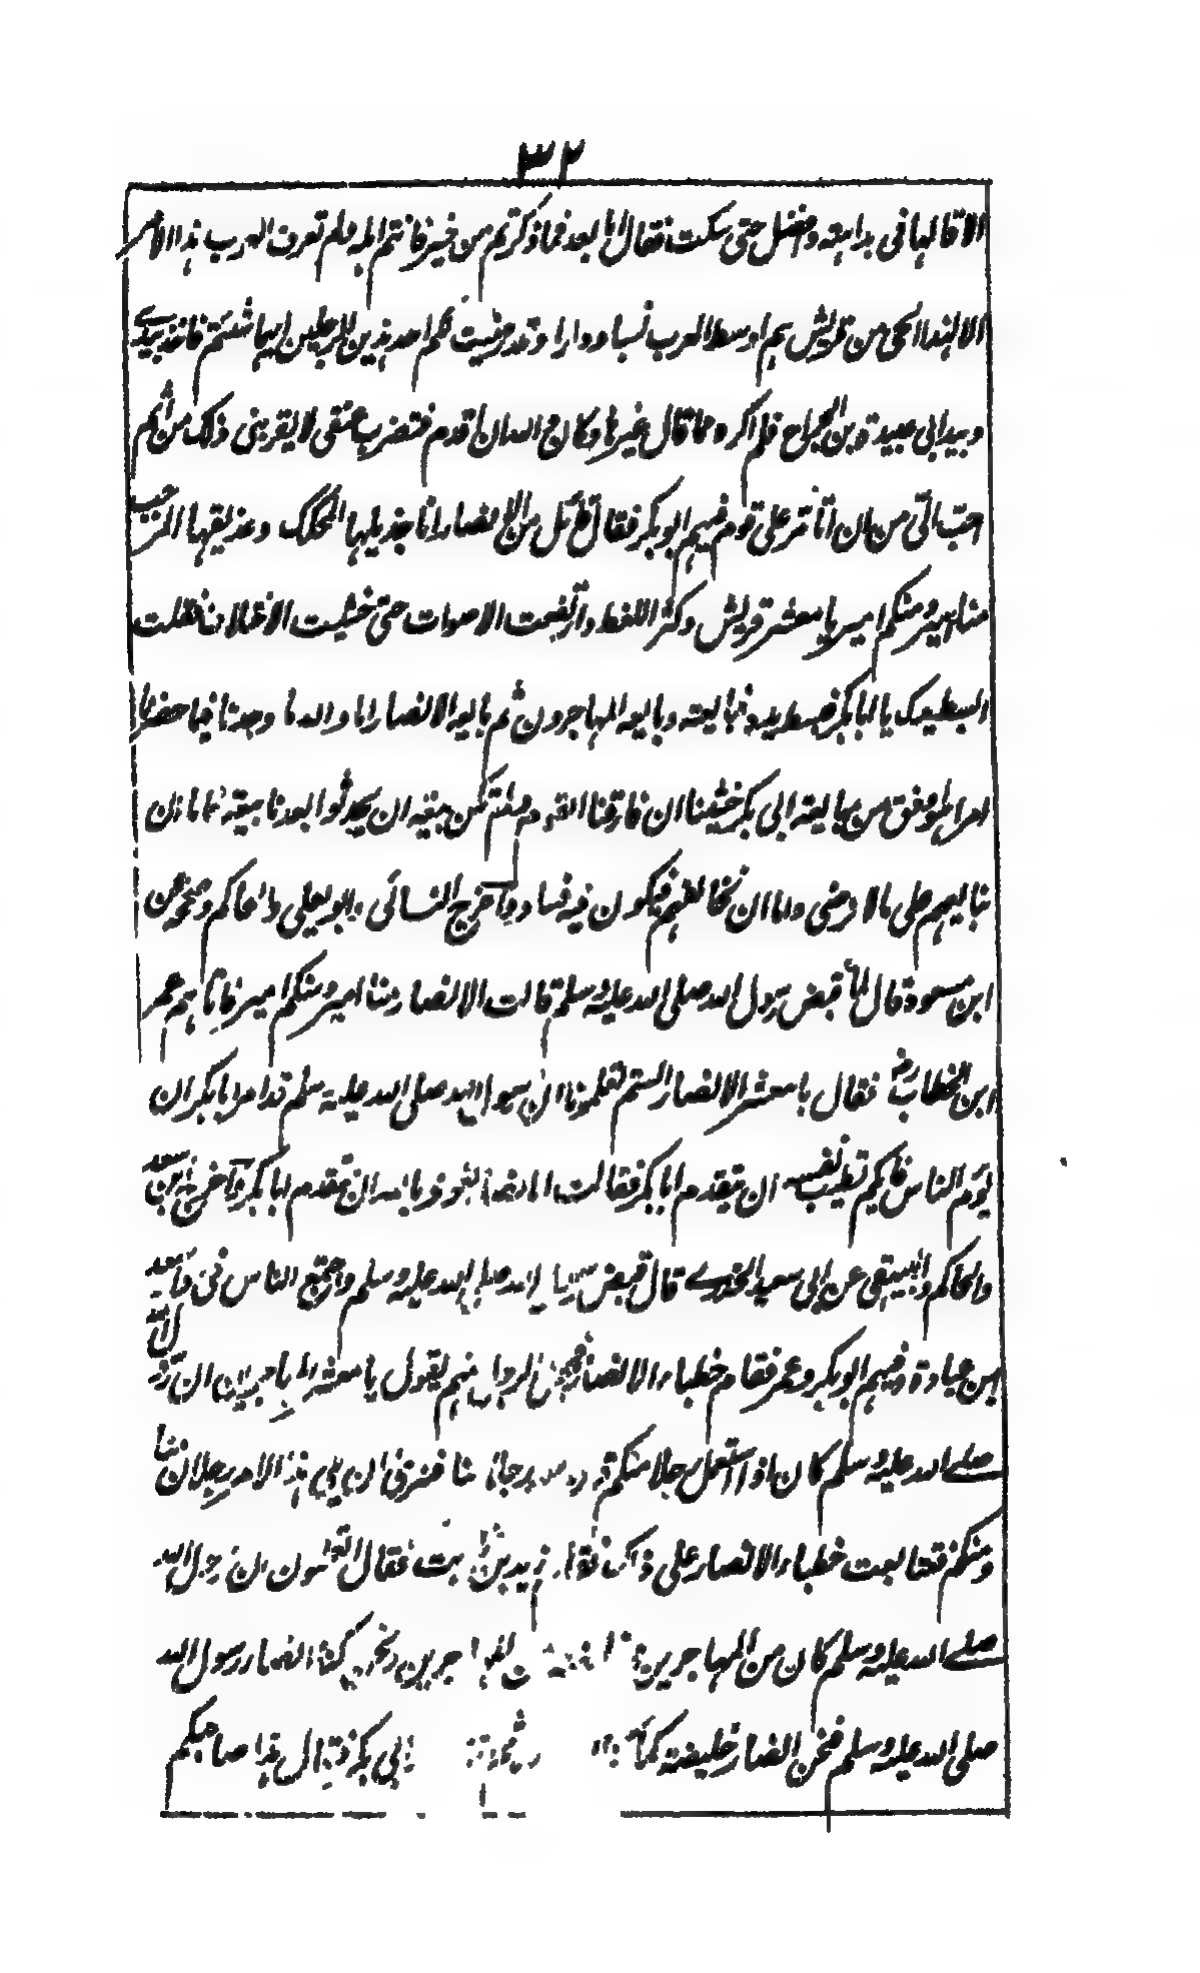 ٣٢
الا قالها فی بداهته وافضل حتی سکت فقال اما بعد فما ذکرتم من خیر فانتم اهله ولم تعرف العرب هذا الامر
الا لهذا الحی من قریش هم اوسط العرب نسبا ودارا وقد رضیت لکم احد هذین الرجلین ایهما شئتم فاخذ بیدے
وبید ابی عبیدة بن الجراح فلم اکره مما قال غیرها وکان والله ان اقدم فتضرب عنقی لا یقربنی ذلک من اثم
احب الی من ان اتامر علی قوم فیهم ابو بکر فقال قائل من الانصار انا جذیلها المحکک وعذیقها المرجب
منا امیر ومنکم امیر یا معشر قریش وکثر اللغط وارتفعت الاصوات حتی خشیت الاختلاف فقلت
ابسط یدک یا ابا بکر فبسط یده فبایعته وبایعه المهاجرون ثم بایعه الانصار اما والله ما وجدنا فیما حضرنا
امرا اوفق من مبایعة ابی بکر خشینا ان فارقنا القوم ولم تکن بیعة ان یحدثوا بعدنا بیعة فاما ان
نبایعهم علی ما لا نرضی واما ان نخالفهم فیکون فیه فساد واخرج النسائی وابو یعلی والحاکم وصححه عن
ابن مسعود قال لما قبض رسول الله صلی الله علیه وسلم قالت الانصار منا امیر ومنکم امیر فاتاهم عمر
ابن الخطاب رضہ فقال یا معشر الانصار الستم تعلمون ان رسول الله صلی الله علیه وسلم قد امر ابا بکر ان
یؤم الناس فایکم تطیب نفسه ان یتقدم ابا بکر فقالت الانصار نعوذ بالله ان نتقدم ابا بکر واخرج ابن سعد
والحاکم والبیهقی عن ابی سعید الخدرے قال قبض رسول الله صلی الله علیه وسلم واجتمع الناس فی دار سعد
بن عبادة وفیهم ابو بکر وعمر فقام خطباء الانصار فجعل الرجل منهم یقول یا معشر المهاجرین ان رسول الله
صلے الله علیه وسلم کان اذا استعمل رجلا منکم قرن معه رجلا منا فنری ان یلی هذا الامر رجلان منا
ومنکم فتتابعت خطباء الانصار علی ذلک فقام زید بن ثابت فقال اتعلمون ان رسول الله
صلے الله علیه وسلم کان من المهاجرین المهاجرین ونحن کنا انصار رسول الله
صلی الله علیه وسلم فنحن انصار خلیفته کما ابی بکر فقال هذا صاحبکم